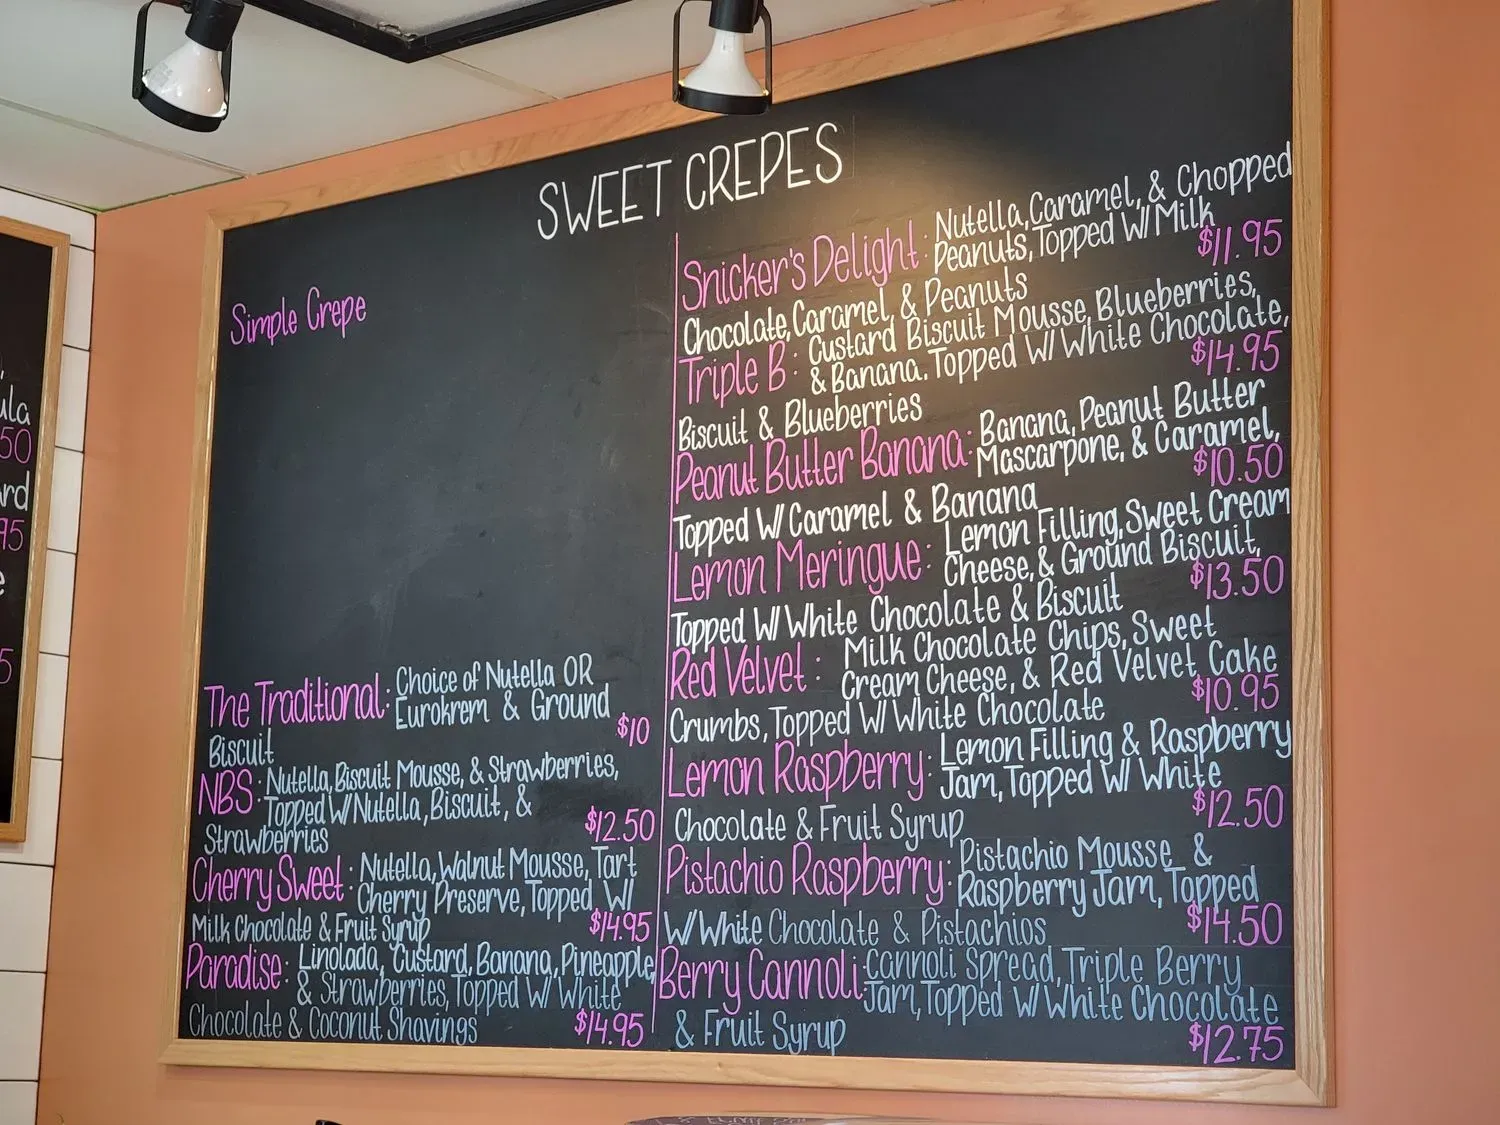 SWEET CREPES
Simple Crepe
The Traditional: Choice of Nutella OR
Eurokrem & Ground
$10
Biscuit
NBS: Nutella, Biscuit Mousse, & Strawberries,
Topped W/ Nutella, Biscuit, &
$12.50
Strawberries
Cherry Sweet: Nutella, Walnut Mousse, Tart
Cherry Preserve, Topped W/
Milk Chocolate & Fruit Syrup
$14.95
Paradise: Linolada, Custard, Banana, Pineapple,
& Strawberries, Topped W/ White
Chocolate & Coconut Shavings
$14.95
Snicker's Delight: Nutella, Caramel, & Chopped
Peanuts, Topped W/ Milk
$11.95
Chocolate, Caramel, & Peanuts
Triple B: Custard Biscuit Mousse, Blueberries,
& Banana. Topped W/ White Chocolate,
$14.95
Biscuit & Blueberries
Peanut Butter Banana: Banana, Peanut Butter
Mascarpone, & Caramel,
$10.50
Topped W/ Caramel & Banana
Lemon Meringue: Lemon Filling, Sweet Cream
Cheese, & Ground Biscuit,
$13.50
Topped W/ White Chocolate & Biscuit
Red Velvet: Milk Chocolate Chips, Sweet
Cream Cheese, & Red Velvet Cake
$10.95
Crumbs, Topped W/ White Chocolate
Lemon Raspberry: Lemon Filling & Raspberry
Jam, Topped W/ White
$12.50
Chocolate & Fruit Syrup
Pistachio Raspberry: Pistachio Mousse &
Raspberry Jam, Topped
$14.50
W/ White Chocolate & Pistachios
Berry Cannoli: Cannoli Spread, Triple Berry
Jam, Topped W/ White Chocolate
& Fruit Syrup
$12.75